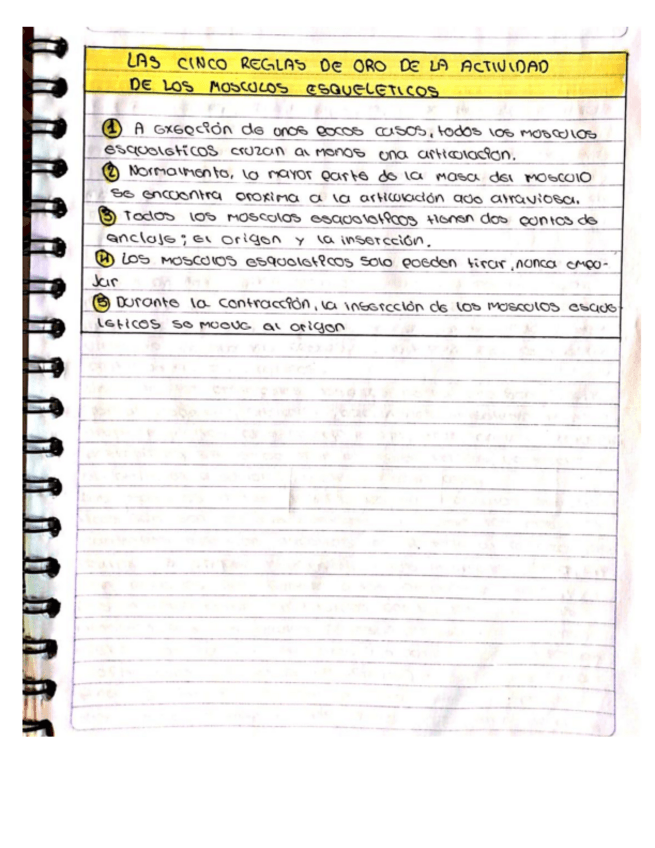 LAS CINCO REGLAS DE ORO DE LA ACTIVIDAD
DE LOS MUSCULOS ESQUELETICOS
① A exseción de unos pocos casos, todos los musculos
esqueleticos cruzan al menos una articulación.
② Normalmente, la mayor parte de la masa del musculo
se encuentra proxima a la articulación que atraviesa.
③ Todos los musculos esqueleticos tienen dos puntos de
anclaje; el origen y la inserción.
④ Los musculos esqueleticos solo pueden tirar, nunca empu-
jar
⑤ Durante la contracción, la inserción de los musculos esque
leticos se mueve al origen